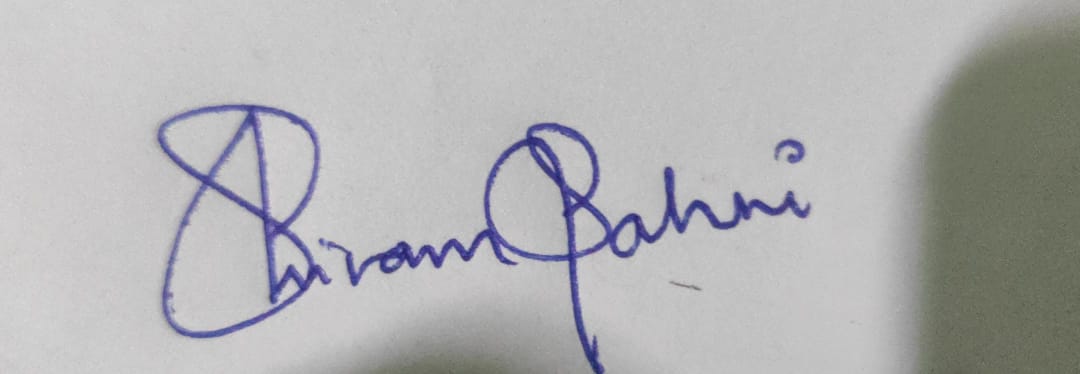 Shivam Sahni